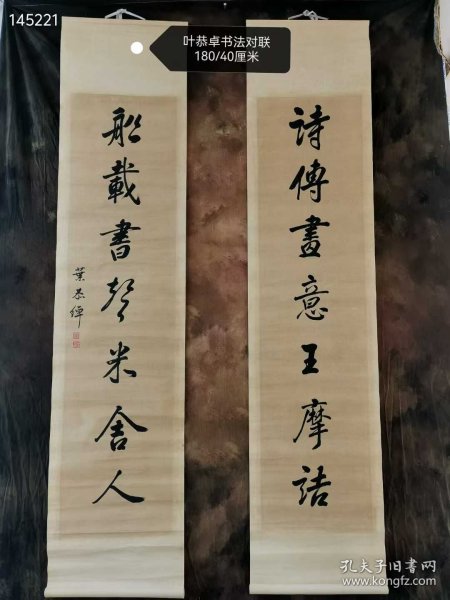 145221
叶恭卓书法对联
180/40厘米
詩傳畫意王摩詰
船載書聲米舍人
葉恭綽
孔夫子旧书网
www.kongfz.com